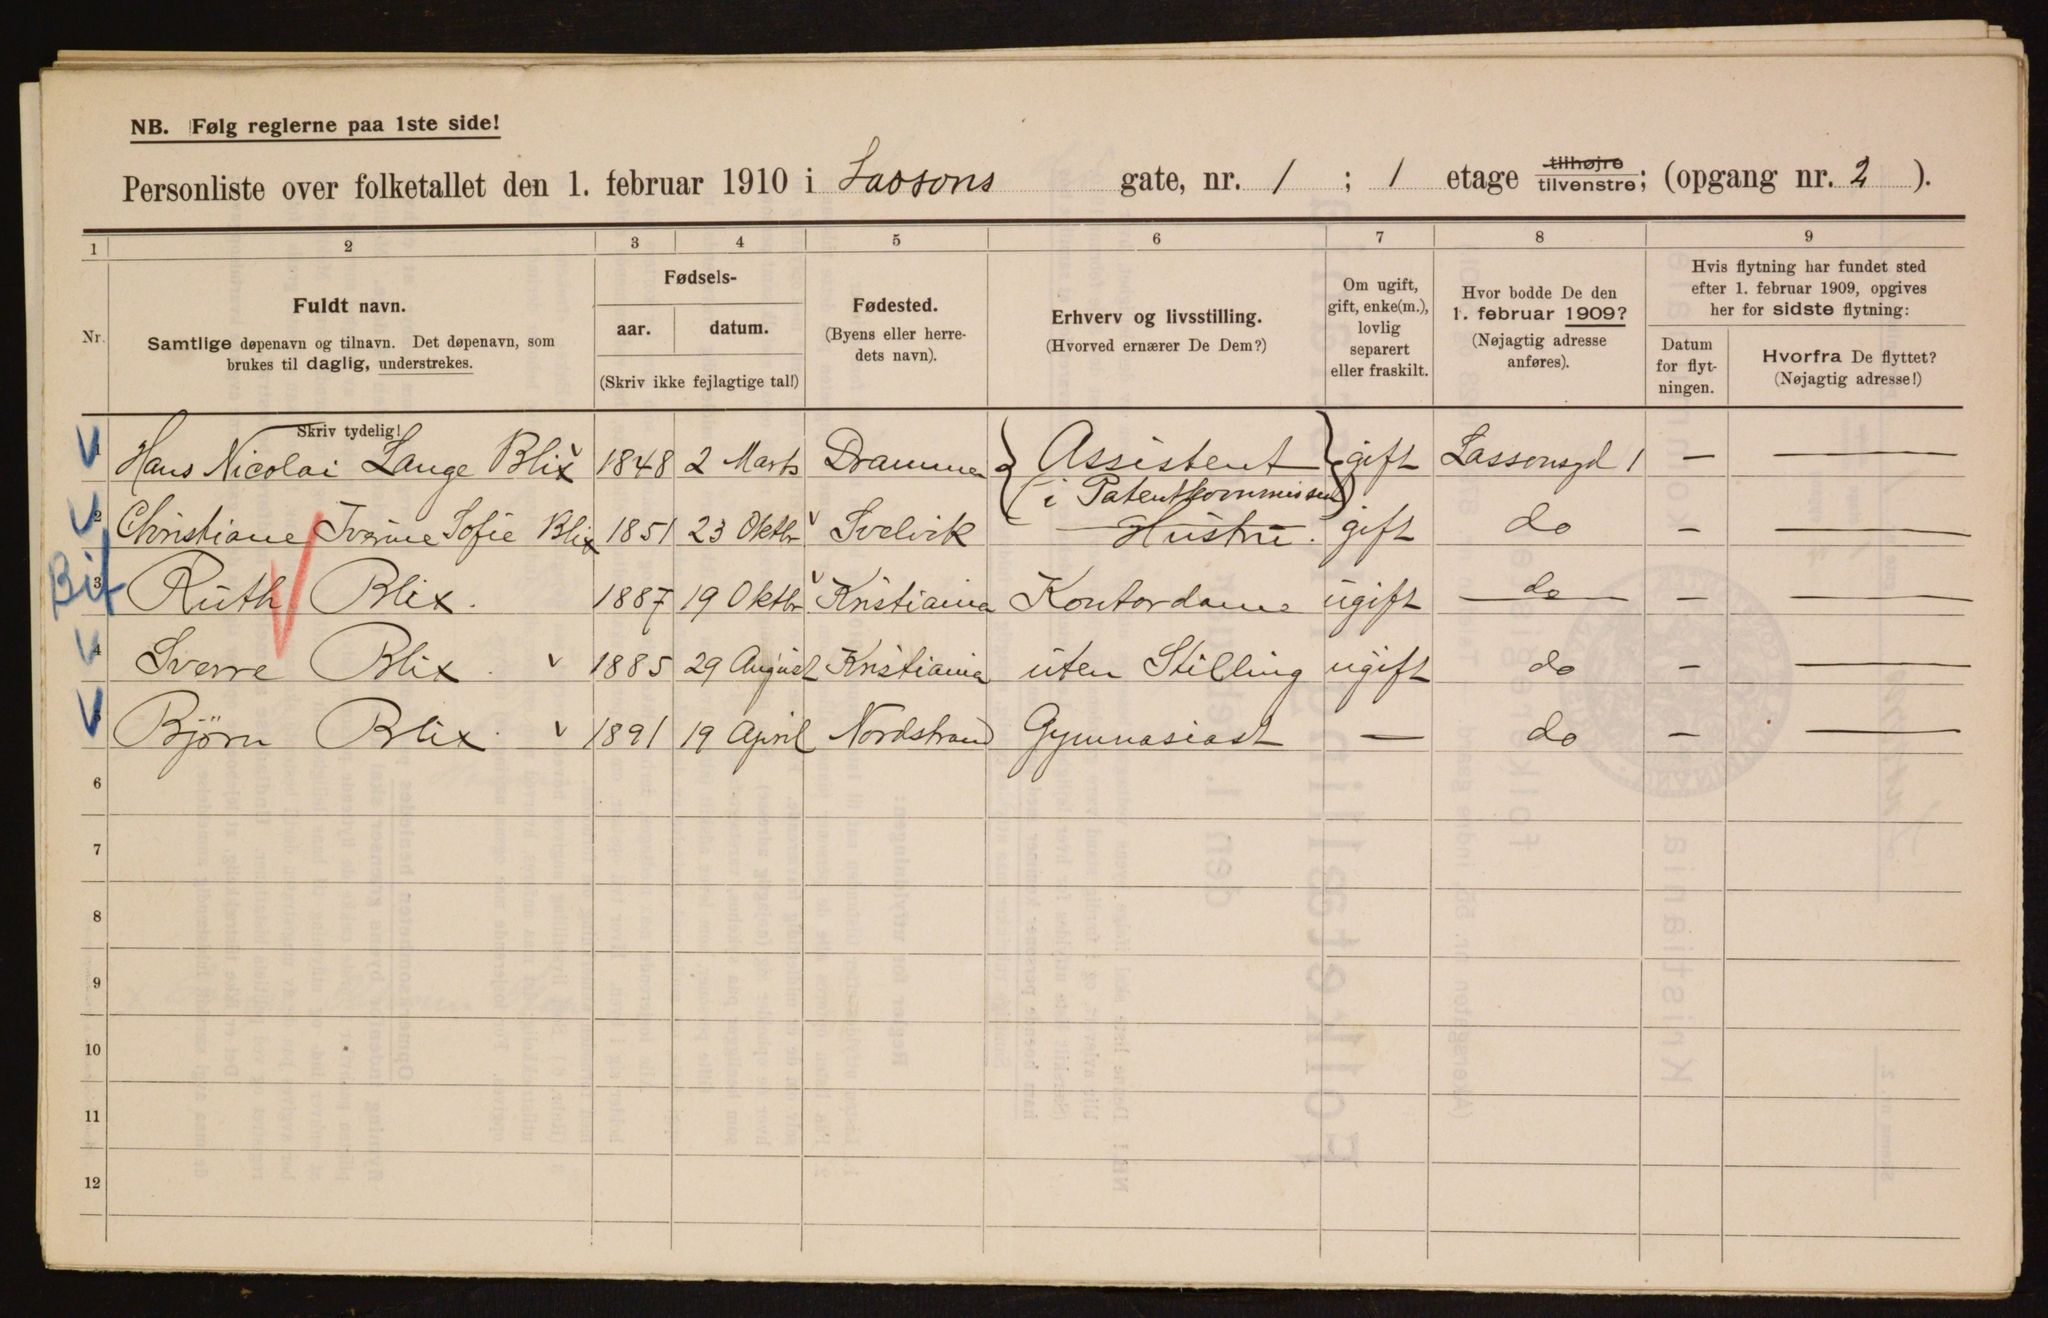 NB. Følg reglerne paa 1ste side!
Personliste over folketallet den 1. februar 1910 i Lassons gate, nr. 1 ; 1 etage tilhøjre tilvenstre; (opgang nr. 2 ).
1 2 3 4 5 6 7 8 9
Nr.
Fuldt navn.
Samtlige døpenavn og tilnavn. Det døpenavn, som
brukes til daglig, understrekes.
Skriv tydelig!
Fødsels-
aar. datum.
(Skriv ikke fejlagtige tal!)
Fødested.
(Byens eller herre-
dets navn).
Erhverv og livsstilling.
(Hvorved ernærer De Dem?)
Om ugift,
gift, enke(m.),
lovlig
separert
eller fraskilt.
Hvor bodde De den
1. februar 1909?
(Nøjagtig adresse
anføres).
Hvis flytning har fundet sted
efter 1. februar 1909, opgives
her for sidste flytning:
Datum
for flyt-
ningen.
Hvorfra De flyttet?
(Nøjagtig adresse!)
Hans Nicolai Lange Blix 1848 2 Marts Drammen Assistent gift Lassonsgd 1 — —
(i Patentkommissen)
2 Christiane Iverine Sofie Blix 1851 23 Oktbr Svelvik Hustru. gift do — —
Bif
3 Ruth Blix. 1887 19 Oktbr Kristiania Kontordame ugift do — —
4 Sverre Blix 1885 29 August Kristiania uten Stilling ugift do — —
Bjørn Blix. 1891 19 April Nordstrand Gymnasiast — do — —
6
7
8
9
10
11
12